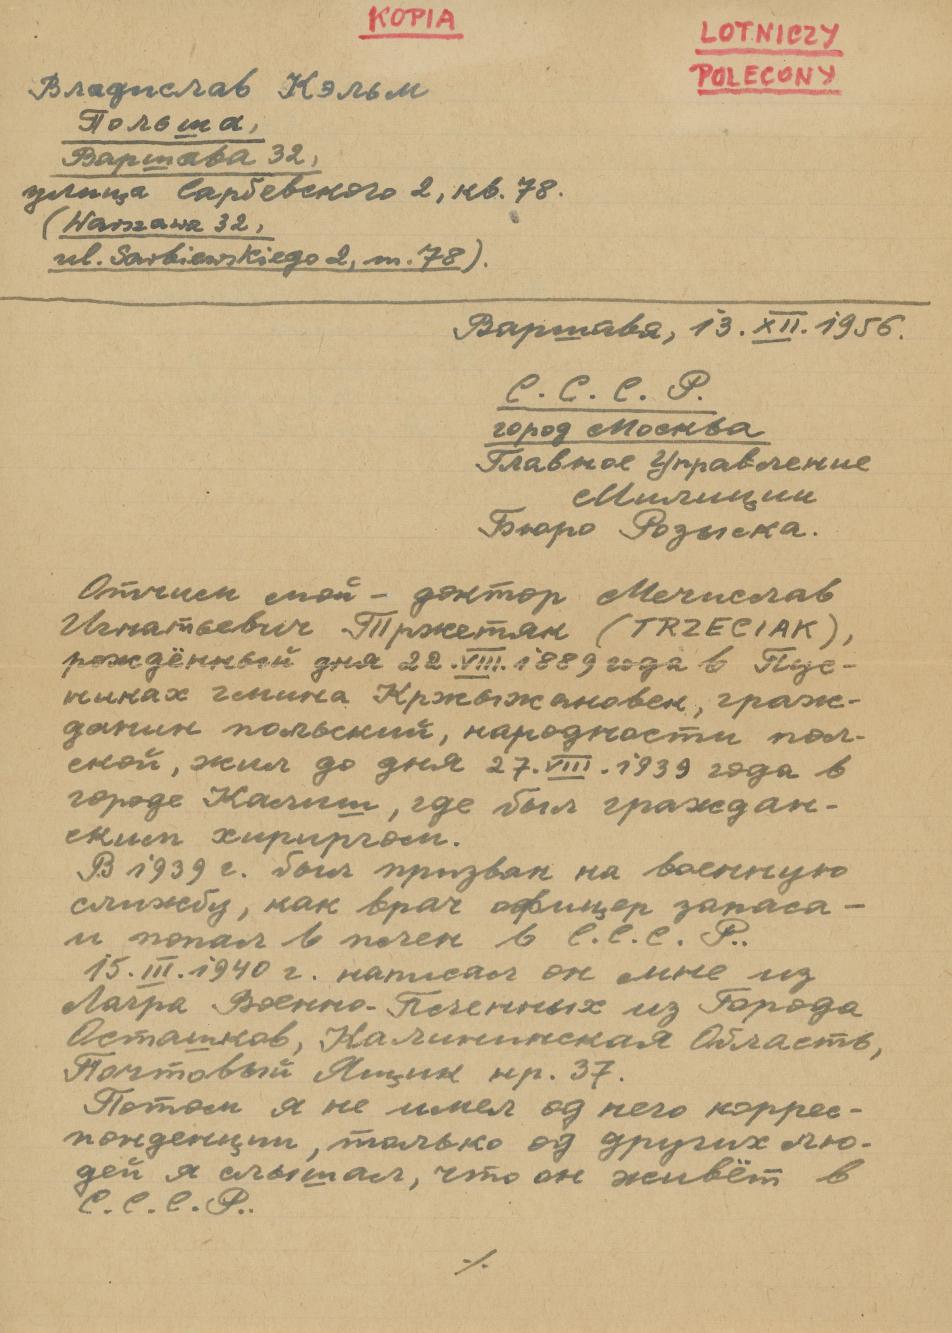 KOPIA
LOTNICZY
POLECONY
Владислав Кэльм
Польша,
Варшава 32,
улица Сарбевского 2, кв. 78.
(Warszawa 32,
ul. Sarbiewskiego 2, m. 78).
Варшава, 13. XII. 1956.
С. С. С. Р.
город Москва
Главное Управление
Милиции
Бюро Розыска.
Отчим мой – доктор Мечислав
Игнатьевич Тржетяк (TRZECIAK),
рождённый дня 22. VIII. 1889 года в
гмина Кржыжановек, граж-
данин польский, народности пол-
ской, жил до дня 27. VIII. 1939 года в
городе Калиш, где был граждан-
ским хирургом.
В 1939 г. был призван на военную
службу, как врач офицер запаса –
и попал в плен в С. С. С. Р..
15. III. 1940 г. написал он мне из
Лагра Военно-Пленных из Города
Осташков, Калининская Область,
Почтовый Ящик нр. 37.
Потом я не имел од него коррес-
понденции, только од других лю-
дей я слышал, что он живёт в
С. С. С. Р..
./.